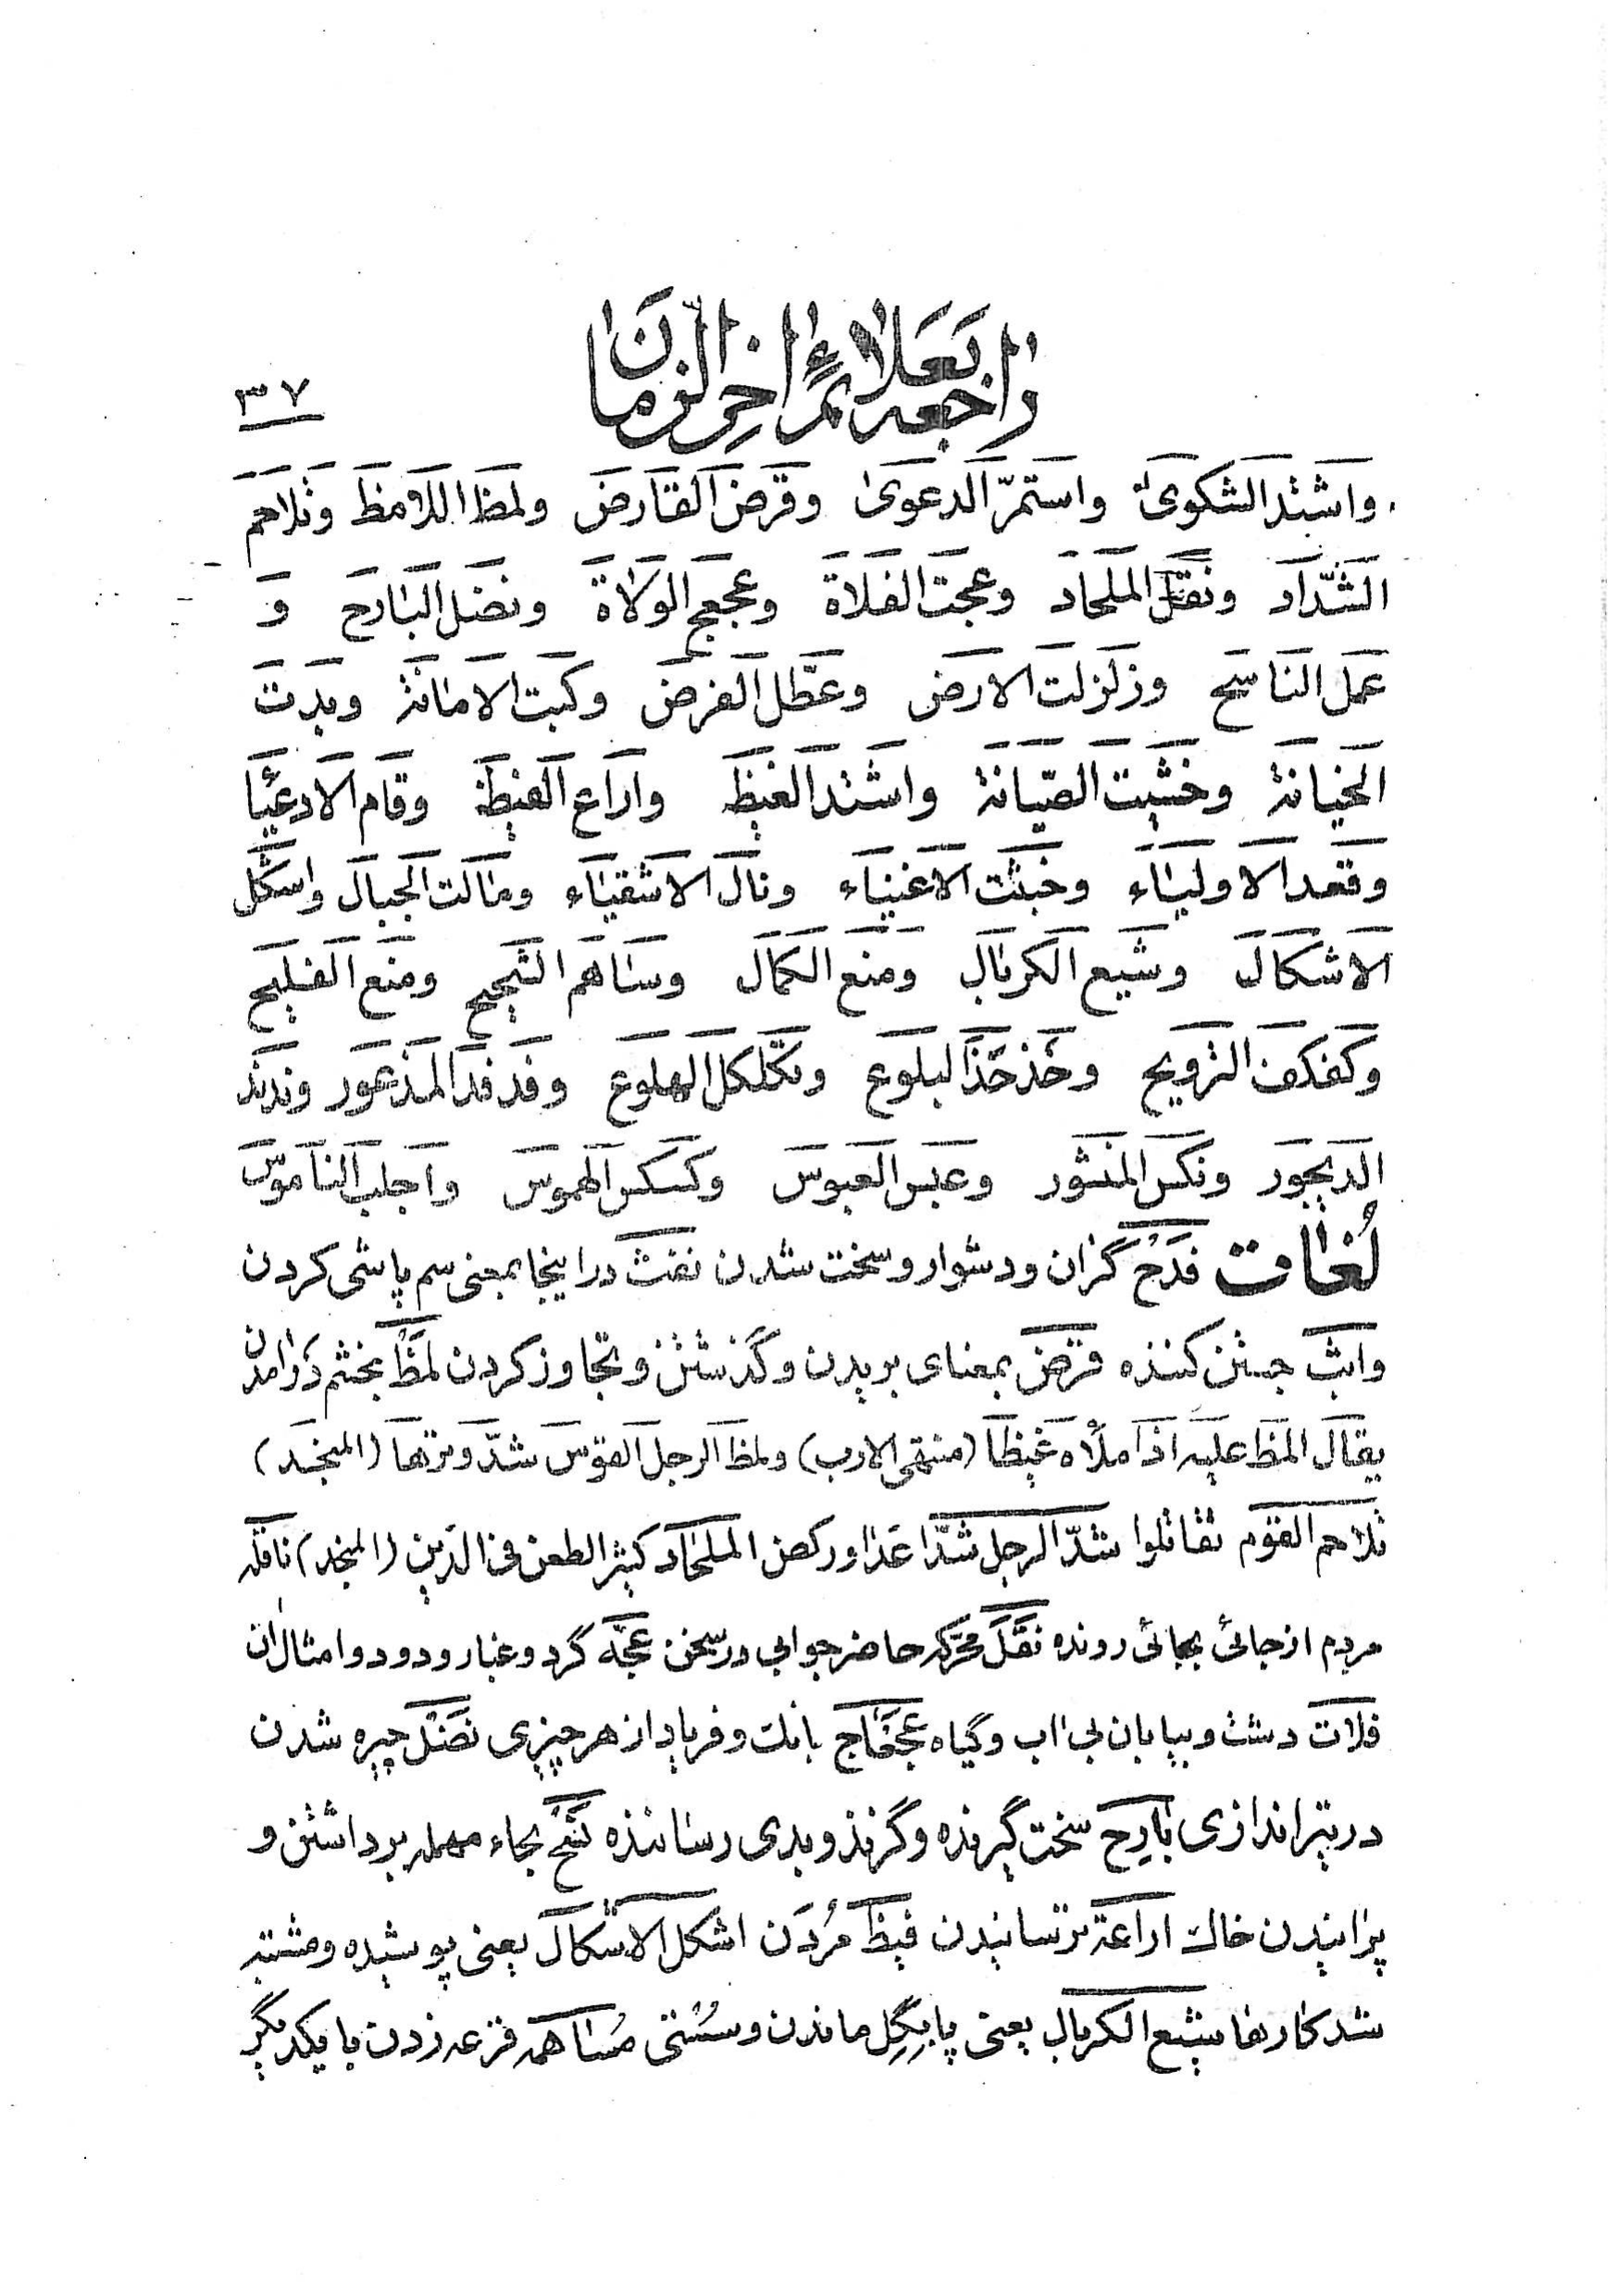 راجعه بعلائم اخر الزمان
۳۷
واشتد الشکوی واستمرّ الدعوی وقرض القارض ولمظ اللامظ وتلاحم
الشّداد ونقل الملحاد وعجت الفلاة وعجعج الولاة ونضل البارح و
عمل الناسح وزلزلت الارض وعطّل الفرض وکبت الامانة وبدت
الخیانة وخشیت الصّیانة واشتد الغیظ واراع الفیظ وقام الادعیا
وقعد الاولیاء وخبثت الاغنیاء ونال الاشقیاء ومالت الجبال واشکل
الاشکال وشیع الکربال ومنع الکمال وساهم الشحیح ومنع الفلیح
وکفکف الترویح وخذخذ البلوع وتکلکل الهلوع وفدفد المذعور وندند
الدیجور ونکس المنشور وعبس العبوس وکسکس الهموس واجلب الناموس
لُغات فدح گران ودشوار وسخت شدن نفث دراینجا بمعنی سم پاشی کردن
واثب جستن کننده قرض بمعنای بریدن وگذشتن وتجاوز کردن لمظ بخشم درامدن
یقال المظ علیه اذا ملأه غیظا (منتهی الارب) ولمظ الرجل القوس شدّ وترها (المنجد)
تلاحم القوم تقاتلوا شدّ الرجل شدّا عدا ورکض الملحاد کثیر الطعن فی الدّین (المنجد) ناقله
مردم ازجائی بجائی رونده نقل محرّکه حاضر جوابی درسخن عجّه گرد وغبار ودود وامثال ان
فلات دشت وبیابان بی اب وگیاه عجعاج بانك وفریاد از هرچیزی نضل چیره شدن
درتیراندازی بارح سخت گیرنده وگزند وبدی رساننده نسح بحاء مهمله برداشتن و
پرانیدن خاك اراعة ترسانیدن فیظ مُردن اشکل الاشکال یعنی پوشیده ومشتبه
شد کارها شیع الکربال یعنی پابگِل ماندن وسُستی مساهمه قرعه زدن با یکدیگر